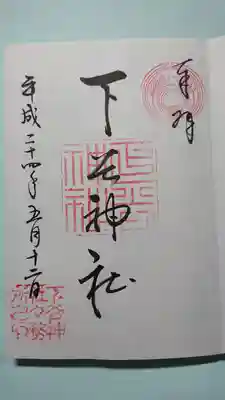 奉拝
下谷神社
平成二十四年五月十二日